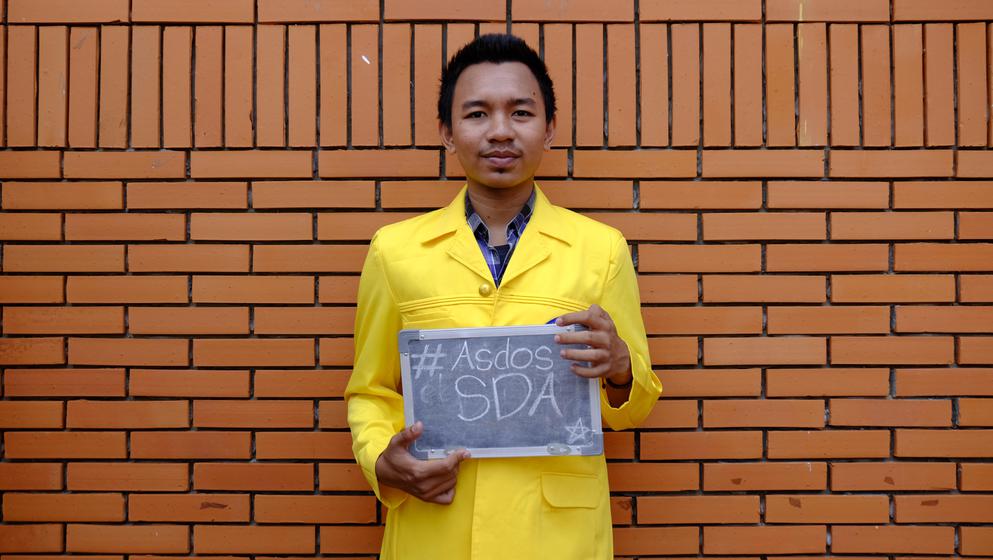 #Asdos
SDA